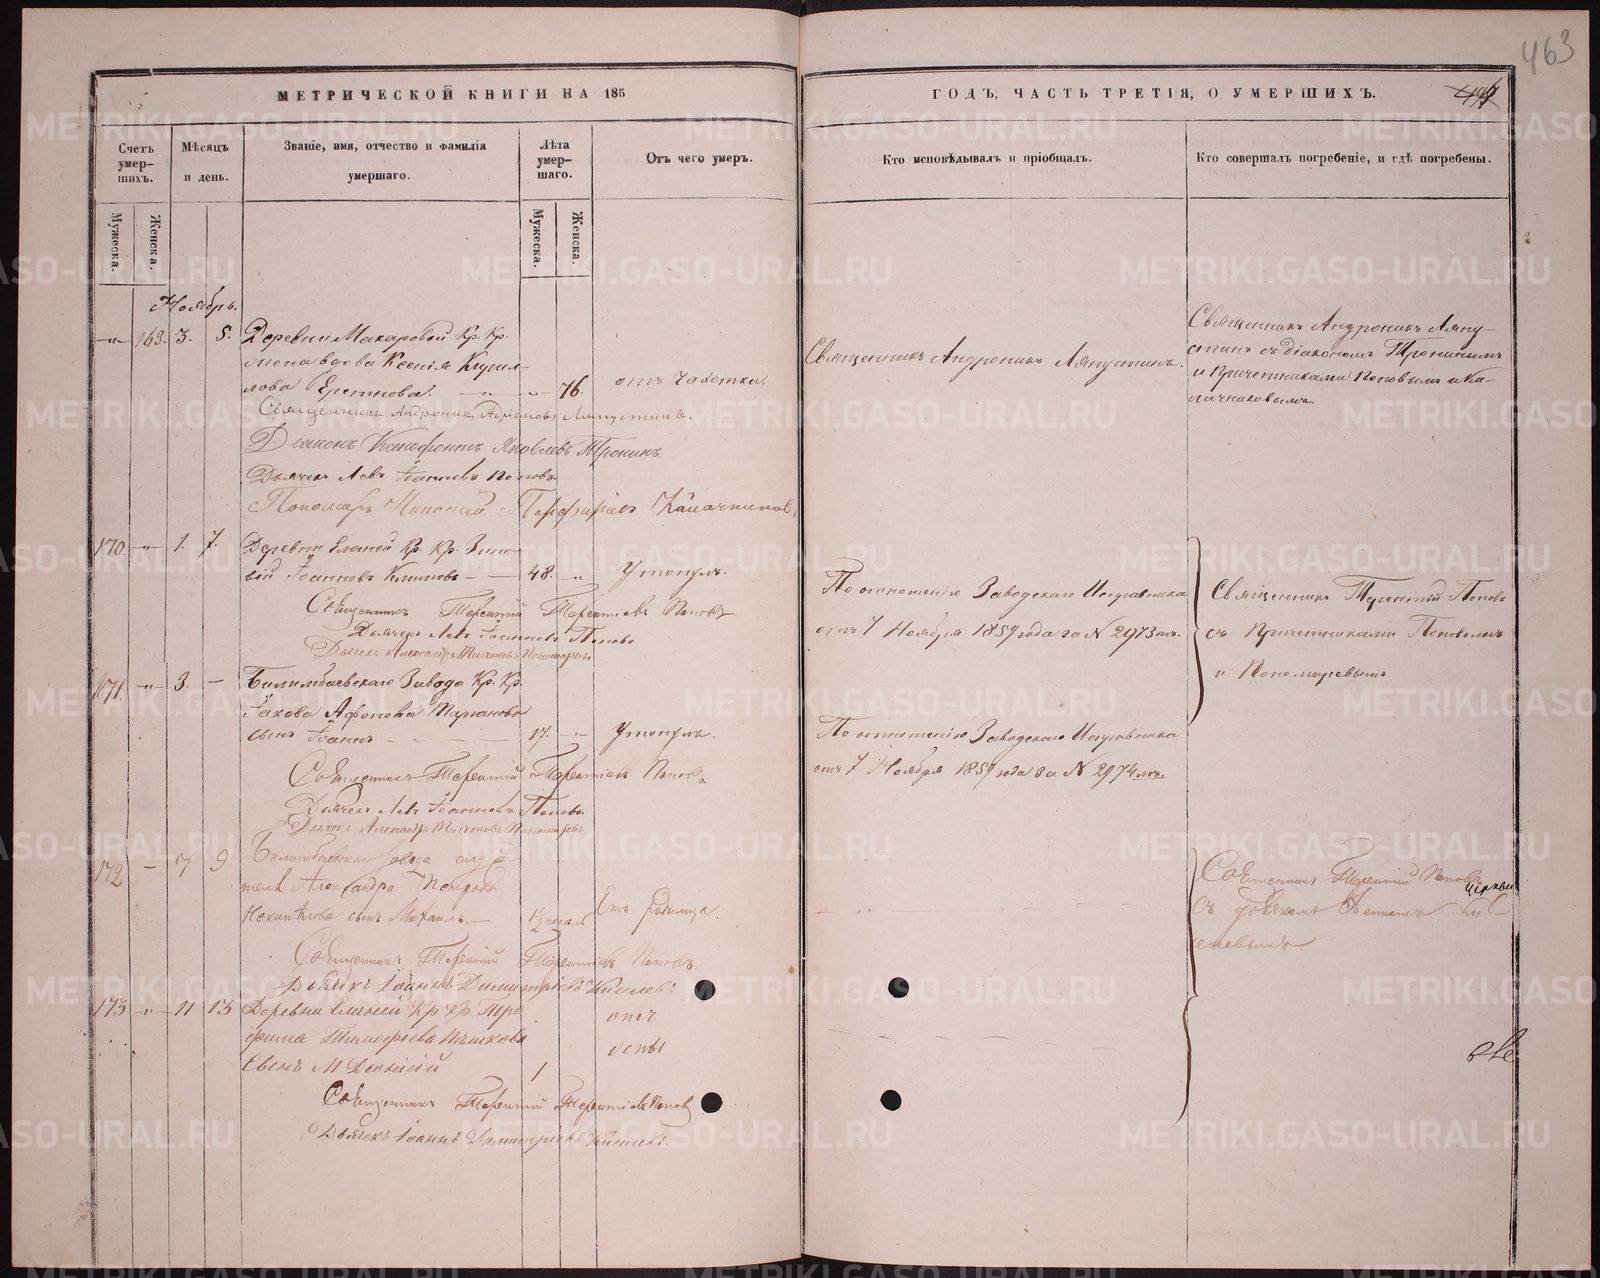 463
МЕТРИЧЕСКОЙ КНИГИ НА 185
ГОДЪ, ЧАСТЬ ТРЕТІЯ, О УМЕРШИХЪ.
Счетъ умер-
шихъ.
Мѣсяцъ
и день.
Званіе, имя, отчество и фамилія
умершаго.
Лѣта
умер-
шаго.
Отъ чего умеръ.
Кто исповѣдывалъ и пріобщалъ.
Кто совершалъ погребеніе, и гдѣ погребены.
Мужеска.
Женска.
Мужеска.
Женска.
Ноябрь.
163. 3. 5. Деревни Макаровой Кр. Кр.
вдова Ксенія Кирил-
лова 76. отъ Чахотки.
Священникъ Андроникъ Ляпустинъ.
Священникъ Андроникъ Ляпу-
стинъ съ Діакономъ Тронинымъ
и Причетниками Поповымъ и Ка-
лачниковымъ.
Священникъ Андроникъ Ляпустинъ.
Діаконъ Ксенофонтъ Яковлевъ Тронинъ.
Дьячекъ Левъ Іоанновъ Поповъ.
Пономарь Николай Порфирьевъ Калачниковъ
170. 1. 7. Деревни Еланей Кр. Кр. Зино-
вій Іоанновъ 48. Утонулъ.
По отношенію Заводскаго Исправника
отъ 7 Ноября 1859 года за № 2973мъ.
Священникъ Терентій Поповъ
съ Причетниками Поповымъ
и Пономаревымъ
Священникъ Терентій Терентіевъ Поповъ
Дьячекъ Левъ Іоанновъ Поповъ
Дьячекъ Александръ Пономаревъ
171. 3. Билимбаевскаго Завода Кр. Кр.
Іакова
сынъ Іоаннъ 17. Утонулъ.
По отношенію Заводскаго Исправника
отъ 7 Ноября 1859 года за № 2974мъ.
Священникъ Терентій Терентіевъ Поповъ
Дьячекъ Левъ Іоанновъ Поповъ.
Дьячекъ Александръ Пономаревъ
172 7 9 Билимбаевскаго Завода служи-
теля Александра Петрова
сынъ Михаилъ 1/2 недел. Отъ родимца.
Священникъ Терентій Поповъ
съ дьячкомъ Іоанномъ Кис-
елевымъ
Священникъ Терентій Терентіевъ Поповъ.
Дьячекъ Іоаннъ Димитріевъ Киселевъ
173 11 13 Деревни Еланей Кр. Кр. Тро-
фима Тимофѣева
сынъ 1 отъ
оспы
Священникъ Терентій Терентіевъ Поповъ
Дьячекъ Іоаннъ Димитріевъ Киселевъ.
METRIKI.GASO-URAL.RU